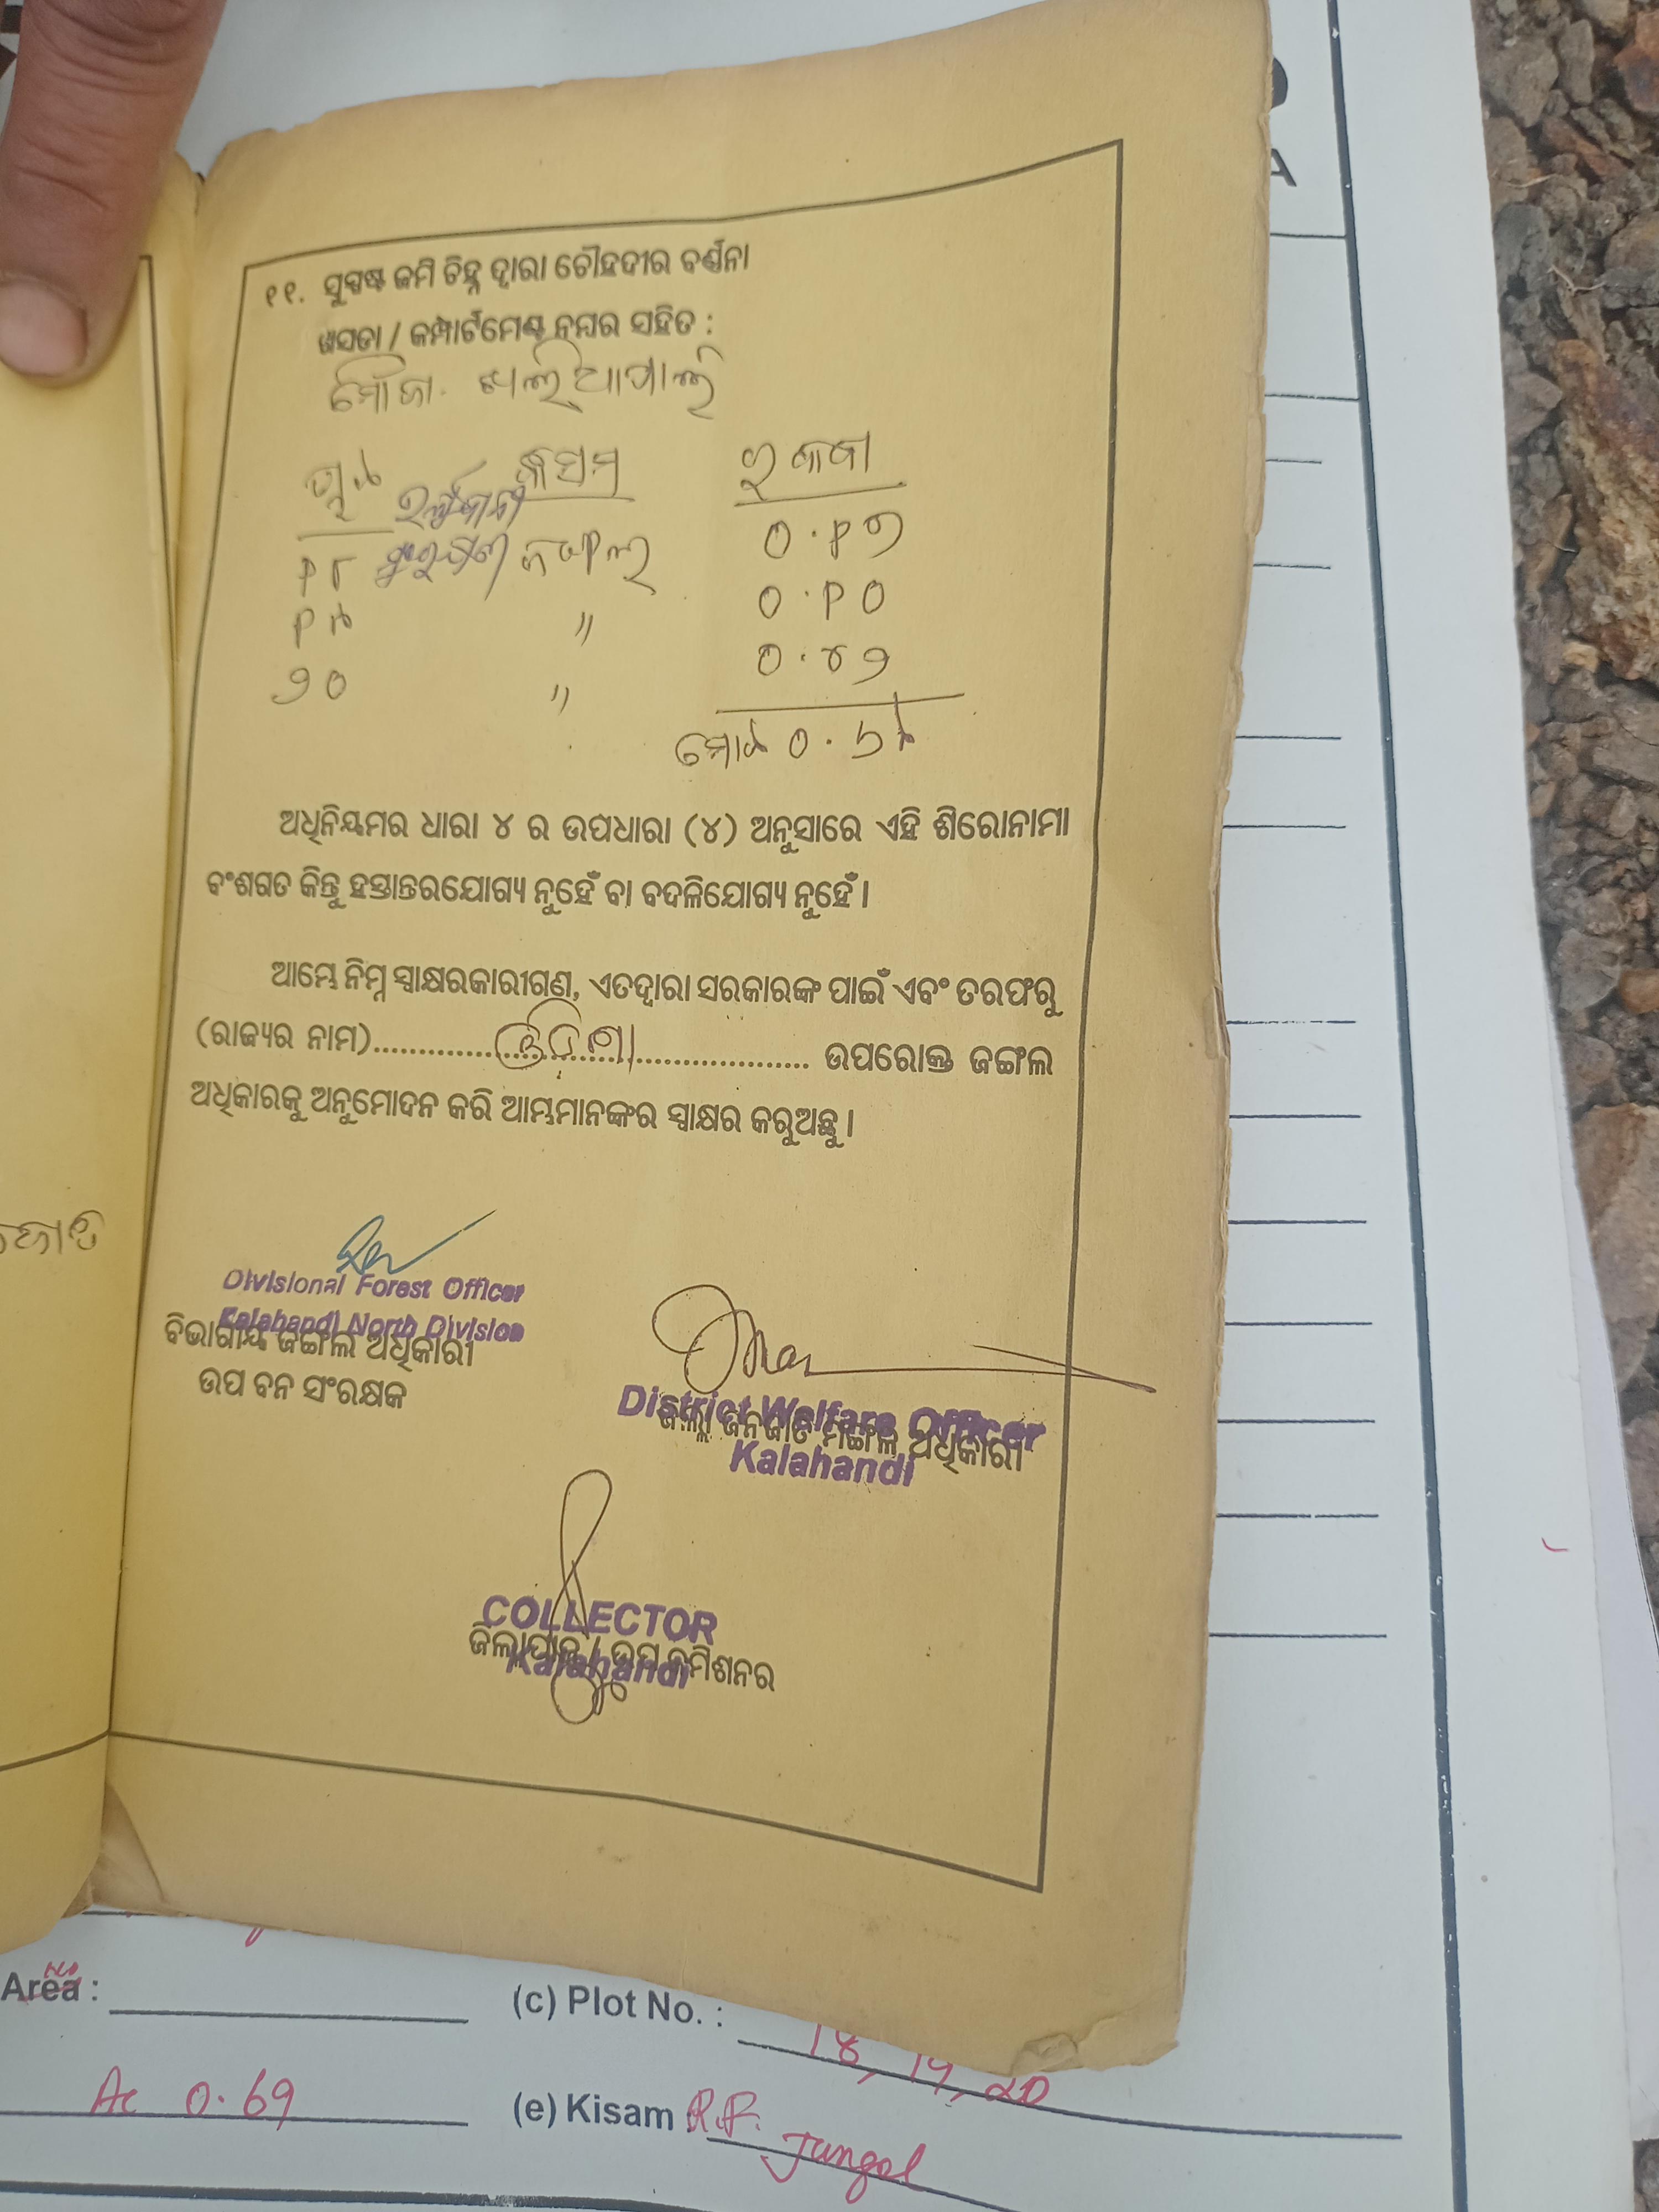 ୧୧. ସୁସ୍ପଷ୍ଟ ଜମି ଚିହ୍ନ ଦ୍ୱାରା ଚୌହଦୀର ବର୍ଣ୍ଣନା
ଖସଡା / କମ୍ପାର୍ଟମେଣ୍ଟ ନମ୍ବର ସହିତ :
ମୌଜା. ଖଲିଆପାଲି
ପ୍ଲଟ କିସମ ରକବା
୧୮ ଜଙ୍ଗଲ ୦.୧୭
୧୯ " ୦.୧୦
୨୦ " ୦.୪୨
ମୋଟ ୦.୬୯
ଅଧିନିୟମର ଧାରା ୪ ର ଉପଧାରା (୪) ଅନୁସାରେ ଏହି ଶିରୋନାମା
ବଂଶଗତ କିନ୍ତୁ ହସ୍ତାନ୍ତରଯୋଗ୍ୟ ନୁହେଁ ବା ବଦଳିଯୋଗ୍ୟ ନୁହେଁ ।
ଆମ୍ଭେ ନିମ୍ନ ସ୍ୱାକ୍ଷରକାରୀଗଣ, ଏତଦ୍ୱାରା ସରକାରଙ୍କ ପାଇଁ ଏବଂ ତରଫରୁ
(ରାଜ୍ୟର ନାମ)..............ଓଡିଶା.................. ଉପରୋକ୍ତ ଜଙ୍ଗଲ
ଅଧିକାରକୁ ଅନୁମୋଦନ କରି ଆମ୍ଭମାନଙ୍କର ସ୍ୱାକ୍ଷର କରୁଅଛୁ ।
Divisional Forest Officer
Kalahandi North Division
ବିଭାଗୀୟ ଜଙ୍ଗଲ ଅଧିକାରୀ
ଉପ ବନ ସଂରକ୍ଷକ
District Welfare Officer
ଜିଲ୍ଲା ଜନଜାତି ମଙ୍ଗଳ ଅଧିକାରୀ
Kalahandi
COLLECTOR
ଜିଲ୍ଲାପାଳ / ଉପ କମିଶନର
Kalahandi
Area :
(c) Plot No. : 18, 19, 20
Ac 0.69
(e) Kisam R.F. Jungal